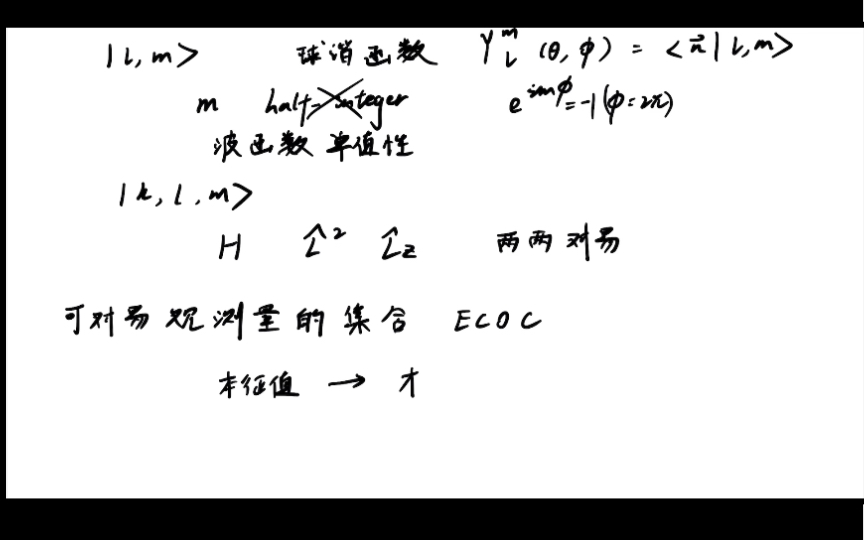 |l,m> 球谐函数 Y_l^m (θ,φ) = <n⃗|l,m>
m half-integer e^{imφ} = -1 (φ=2π)
波函数 单值性
|k,l,m>
H L̂² L̂z 两两对易
可对易观测量的集合 ECOC
本征值 →